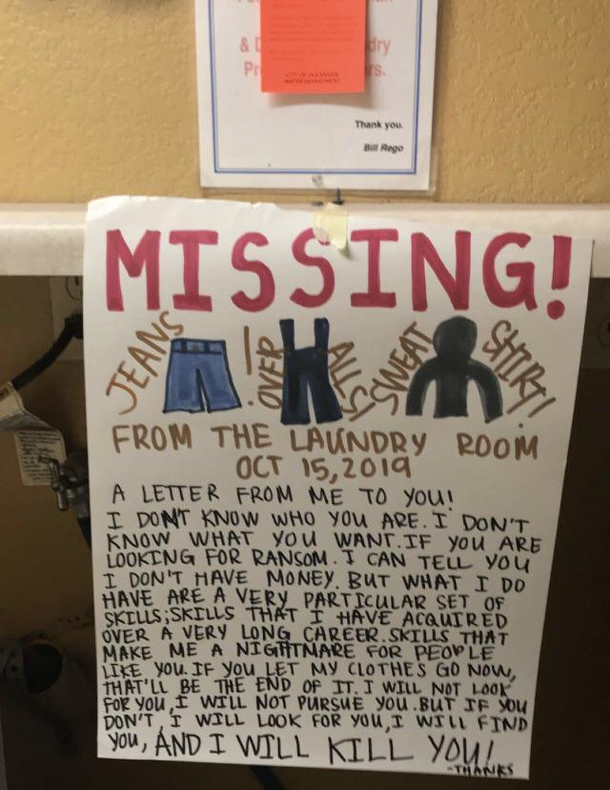 & D dry
Pr rs.
Thank you.
Bill Rego
MISSING!
JEANS! OVERALLS! SWEATSHIRT!
FROM THE LAUNDRY ROOM
OCT 15, 2019
A LETTER FROM ME TO YOU!
I DON'T KNOW WHO YOU ARE. I DON'T
KNOW WHAT YOU WANT. IF YOU ARE
LOOKING FOR RANSOM. I CAN TELL YOU
I DON'T HAVE MONEY. BUT WHAT I DO
HAVE ARE A VERY PARTICULAR SET OF
SKILLS; SKILLS THAT I HAVE ACQUIRED
OVER A VERY LONG CAREER. SKILLS THAT
MAKE ME A NIGHTMARE FOR PEOPLE
LIKE YOU. IF YOU LET MY CLOTHES GO NOW,
THAT'LL BE THE END OF IT. I WILL NOT LOOK
FOR YOU, I WILL NOT PURSUE YOU. BUT IF YOU
DON'T, I WILL LOOK FOR YOU, I WILL FIND
YOU, AND I WILL KILL YOU!
-THANKS